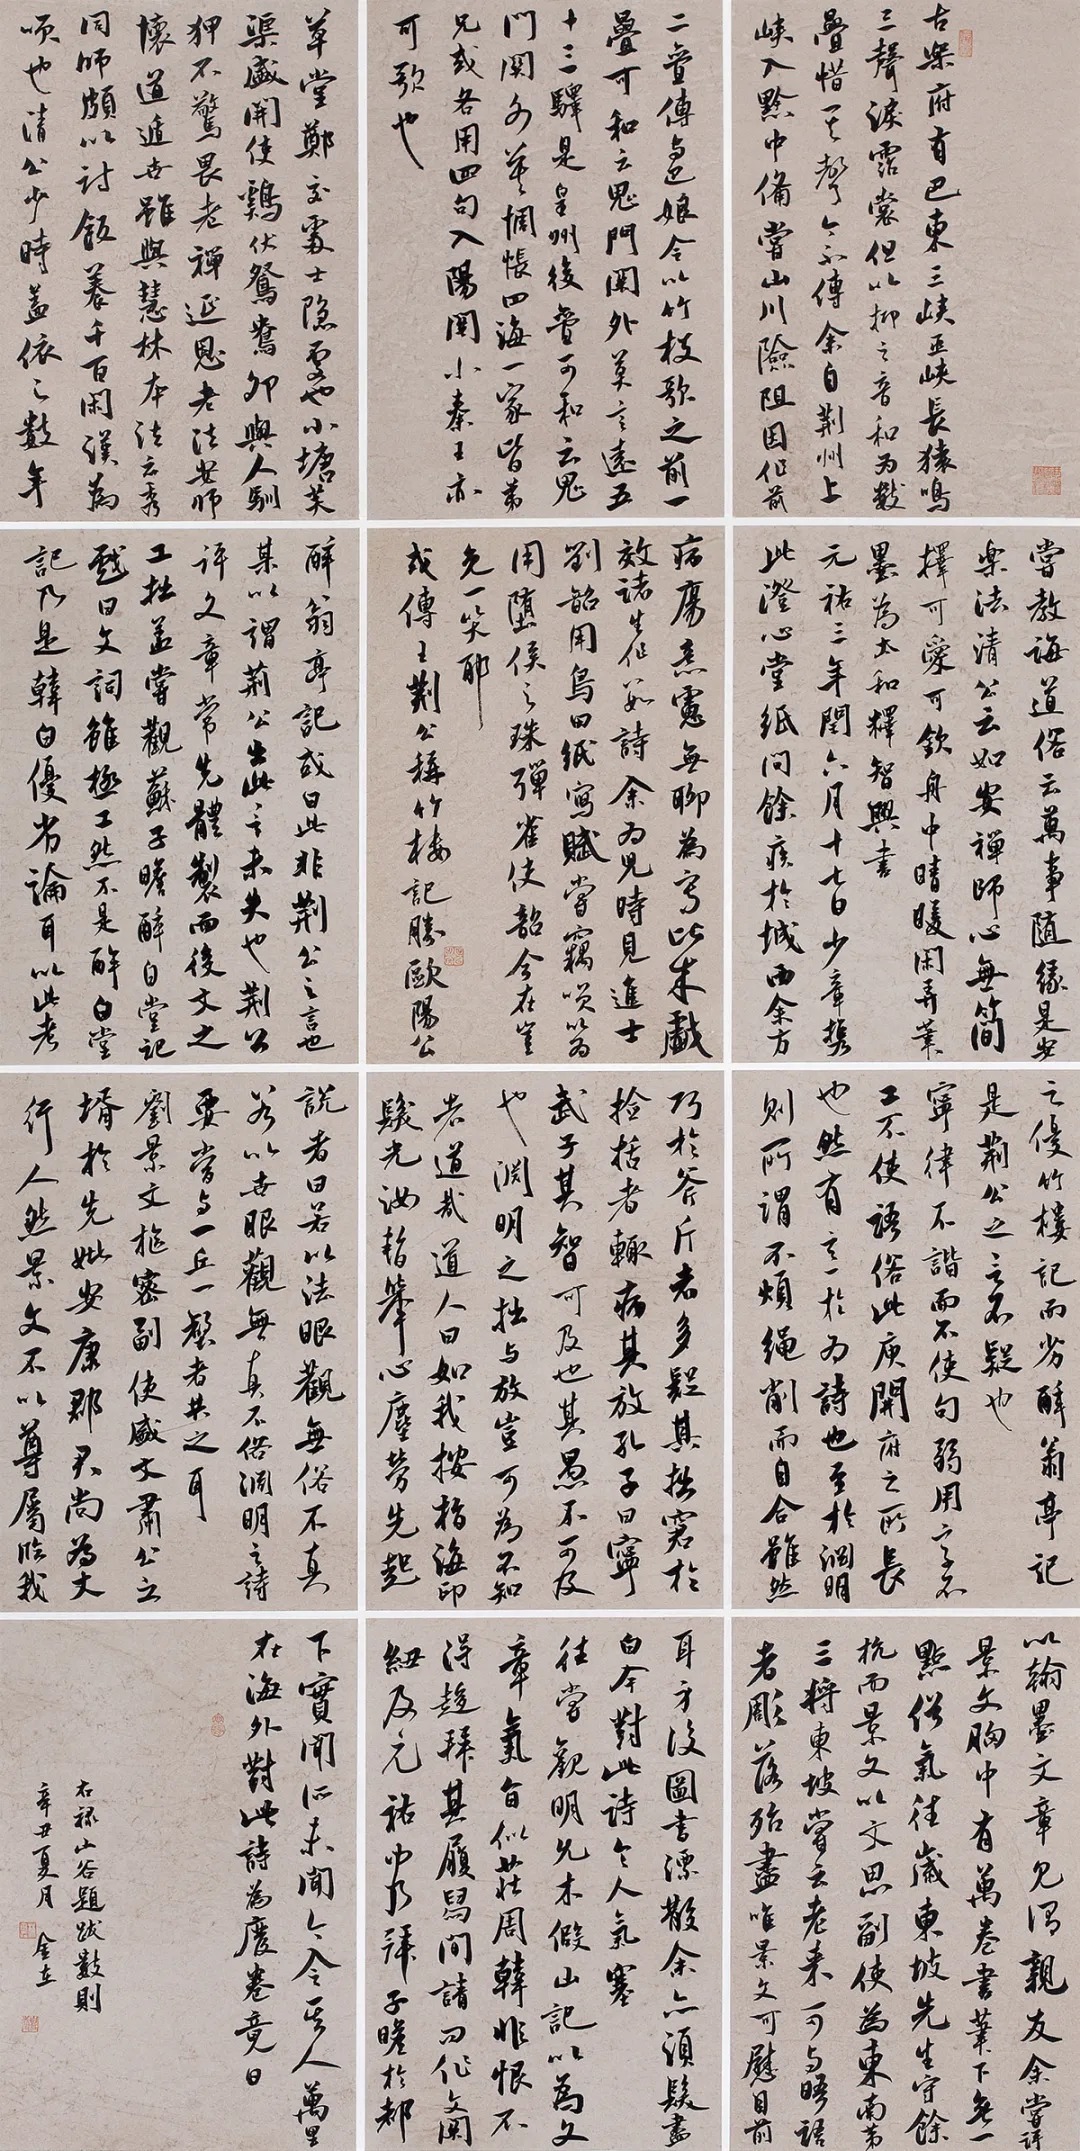 古樂府有巴東三峽巫峽長猿鳴
三聲淚霑裳但以抑之音和為數
疊惜其聲今不傳余自荊州上
峽入黔中備嘗山川險阻因作前
二疊傳與巴娘令以竹枝歌之前一
疊可和云鬼門關外莫言遠五
十三驛是皇州後疊可和云鬼
門関外莫惆悵四海一家皆弟
兄或各用四句入陽関小秦王亦
可歌也
草堂鄭交處士隱處也小塘芙
渠盛開使鷄伏鴛鴦卵與人馴
狎不驚畏老禪延恩老法安師
懷道遁世雖與慧林本法云秀
同師頗以討飯養千百閑漢為
咲也清公少時蓋依之數年
嘗教誨道俗云萬事隨緣是安
樂法清公云如安禪師心無簡
擇可愛可欽舟中晴暖閑弄筆
墨為太和釋智興書
元祐三年閏六月十七日少章携
此澄心堂紙問餘疾於城西余方
病瘍意慮無聊為寫此末戲
效諸生作如詩余為兒時見進士
劉韶用烏田紙寫賦嘗竊咲以為
用隨侯之珠彈雀使韶今在豈
免一笑耶
或傳王荊公稱竹樓記勝歐陽公
醉翁亭記或曰此非荊公之言也
某以謂荊公出此言未失也荊公
評文章常先體製而後文之
工拙蓋嘗觀蘇子瞻醉白堂記
戲曰文詞雖極工然不是醉白堂
記乃是韓白優劣論耳以此考
之優竹樓記而劣醉翁亭記
是荊公之言不疑也
寧律不諧而不使句弱用字不
工不使語俗此庾開府之所長
也然有意於為詩也至於淵明
則所謂不煩繩削而自合雖然
巧於斧斤者多疑其拙窘於
撿括者輒病其放孔子曰寧
武子其智可及也其愚不可及
也淵明之拙与放豈可為不知
者道哉道人曰如我按指海印
發光汝暫舉心塵勞先起
說者曰若以法眼觀無俗不真
若以世眼觀無真不俗淵明之詩
要當与一丘一壑者共之耳
劉景文樞密副使盛文肅公之
壻於先妣安康郡君尚為丈
行人然景文不以尊屬臨我
以翰墨文章見謂親友余嘗評
景文胸中有萬卷書筆下無一
點俗氣往歲東坡先生守餘
杭而景文以文思副使為東南第
三將東坡嘗云老來可与晤語
者彫落殆盡唯景文可慰目前
耳方復圖書漂散余亦須髮盡
白今對此詩令人氣塞
往嘗觀明允木假山記以為文
章氣旨似莊周韓非恨不
得趨拜其履舄間請問作文関
紐及元祐中乃拜子瞻於都
下實聞所未聞今令其人萬里
在海外對此詩為廢卷竟日
右錄山谷題跋數則
辛丑夏月